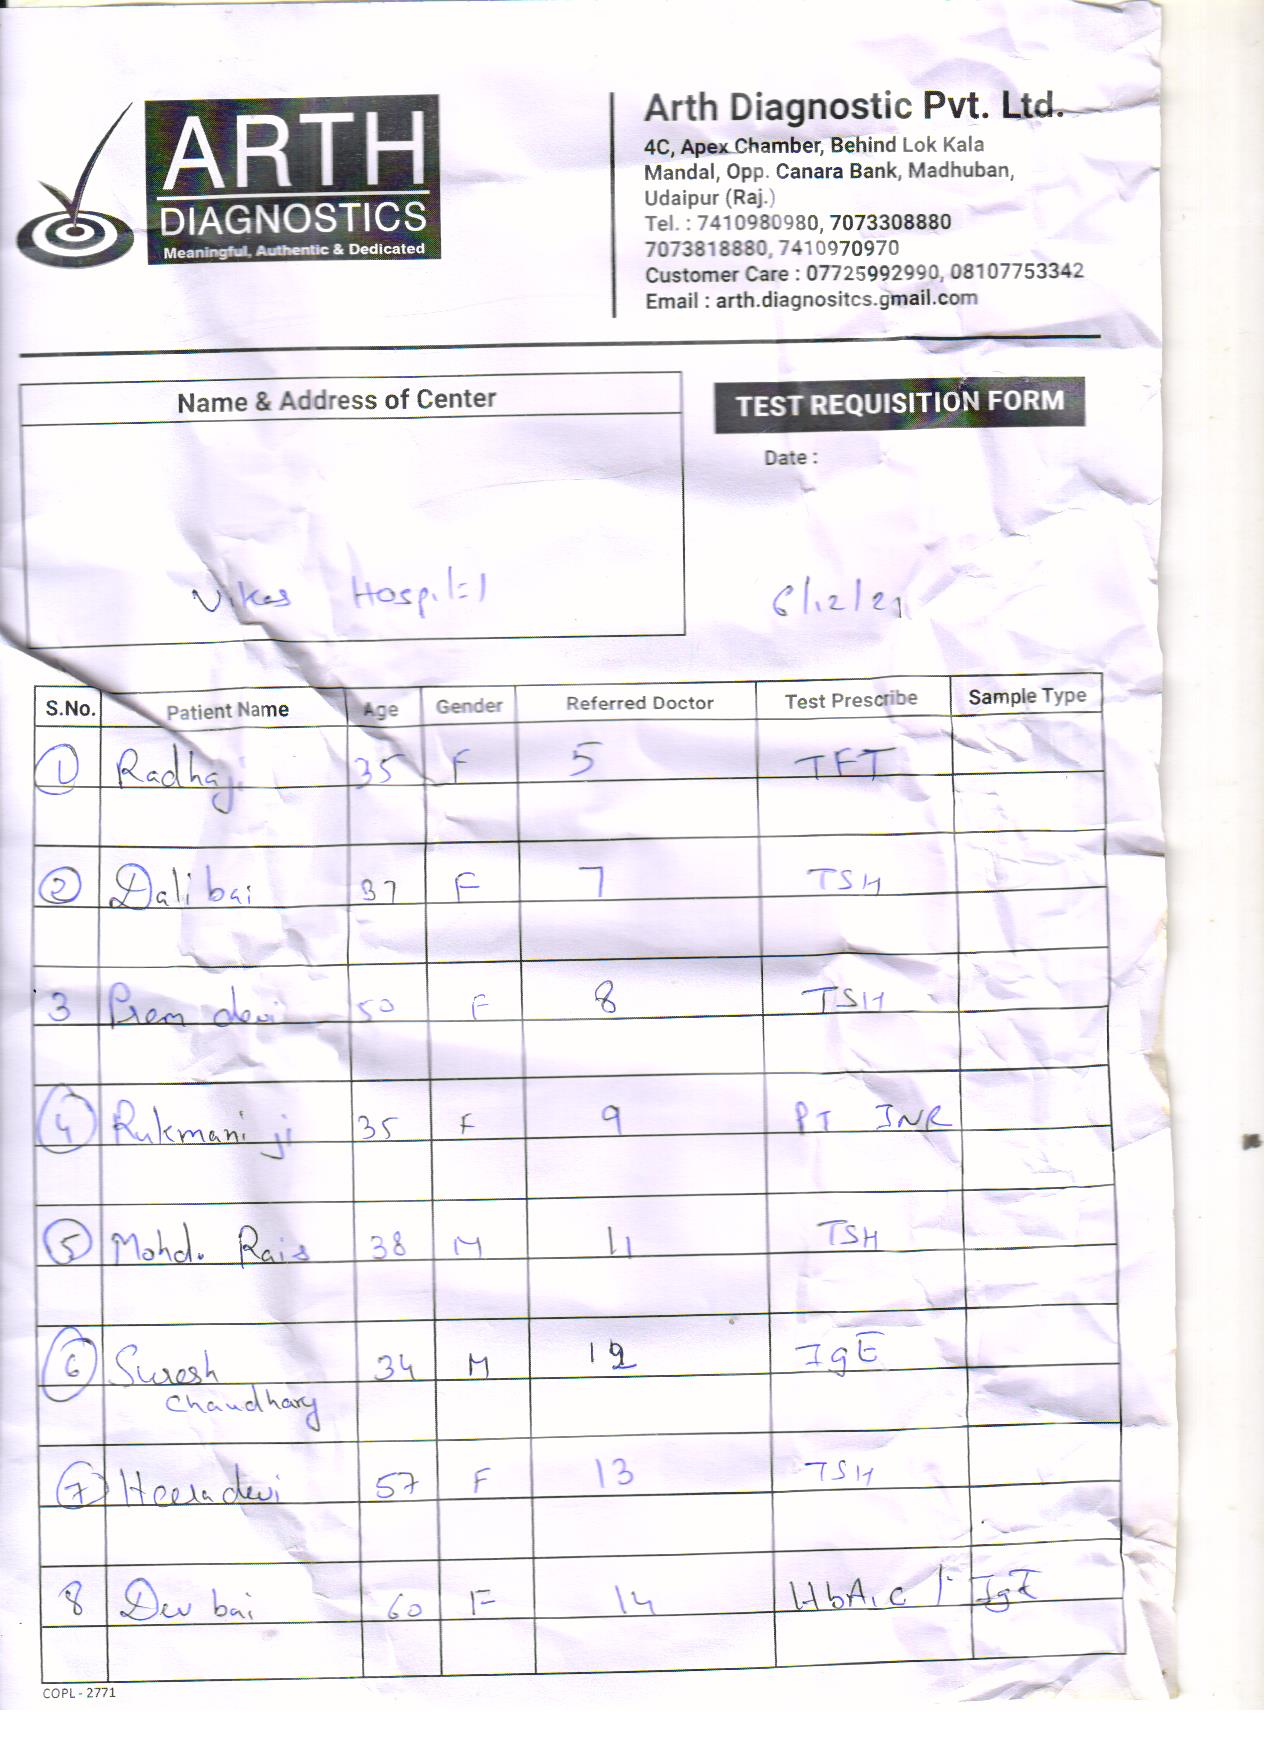 ARTH
DIAGNOSTICS
Meaningful, Authentic & Dedicated
Arth Diagnostic Pvt. Ltd.
4C, Apex Chamber, Behind Lok Kala
Mandal, Opp. Canara Bank, Madhuban,
Udaipur (Raj.)
Tel. : 7410980980, 7073308880
7073818880, 7410970970
Customer Care : 07725992990, 08107753342
Email : arth.diagnositcs.gmail.com
Name & Address of Center
TEST REQUISITION FORM
Date :
Vikas Hospital
6/12/21
S.No. Patient Name Age Gender Referred Doctor Test Prescribe Sample Type
1 Radha ji 35 F 5 TFT
2 Dali bai 37 F 7 TSH
3 Prem devi 50 F 8 TSH
4 Rukmani ji 35 F 9 PT INR
5 Mohd. Rais 38 M 11 TSH
6 Suresh 34 M 12 IgE
Chaudhary
7 Heera devi 57 F 13 TSH
8 Dev bai 60 F 14 HbA1c / IgE
COPL - 2771